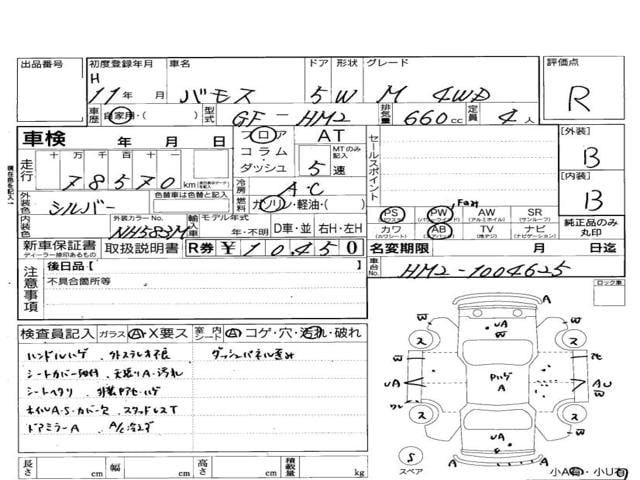 出品番号
初度登録年月 車名 ドア 形状 グレード
H 11 年 月 バモス 5 W M 4WD
評価点
R
車歴 自家用・( ) 型式 GF-HM2 排気量 660 cc 定員 4 人
車検 年 月 日
フロア コラム・ダッシュ
AT
MTのみ記入
5 速
セールスポイント
[外装]
B
走行 十万 万 千 百 十
78570 km
冷房 AC
[内装]
B
外装色 シルバー
色替車は色替と記入
燃料 ガソリン・軽油・( )
PS (パワステ) PW (パワーウィンド) AW (アルミホイル) SR (サンルーフ)
純正品のみ丸印
内装色
外装カラーNo. NH583M
輸入車 モデル年式 年・不明 D車・並 右H・左H
カワ (カワシート) AB (エアバッグ) TV (地デジ) ナビ (ナビゲーション)
新車保証書 取扱説明書 R券 ¥10,450
ディーラー捺印あるもの
名変期限 月 日迄
注意事項
後日品【 】
不具合箇所等
車台No. HM2-1004625
ロック車
検査員記入 ガラス A・X要ス 室内シート A コゲ・穴・汚れ・破れ
ハンドルハゲ
ダッシュパネル歪み
シートカバー
天張りA・汚れ
シートヘタリ
スタッドレスT
ドアミラーA
長さ cm 幅 cm 高さ cm 積載量 kg
A
UA
W
W
ス
ス
PハゲA
A
AU
W
ス
ス
UA
S
スペア
A
小A有・小U有